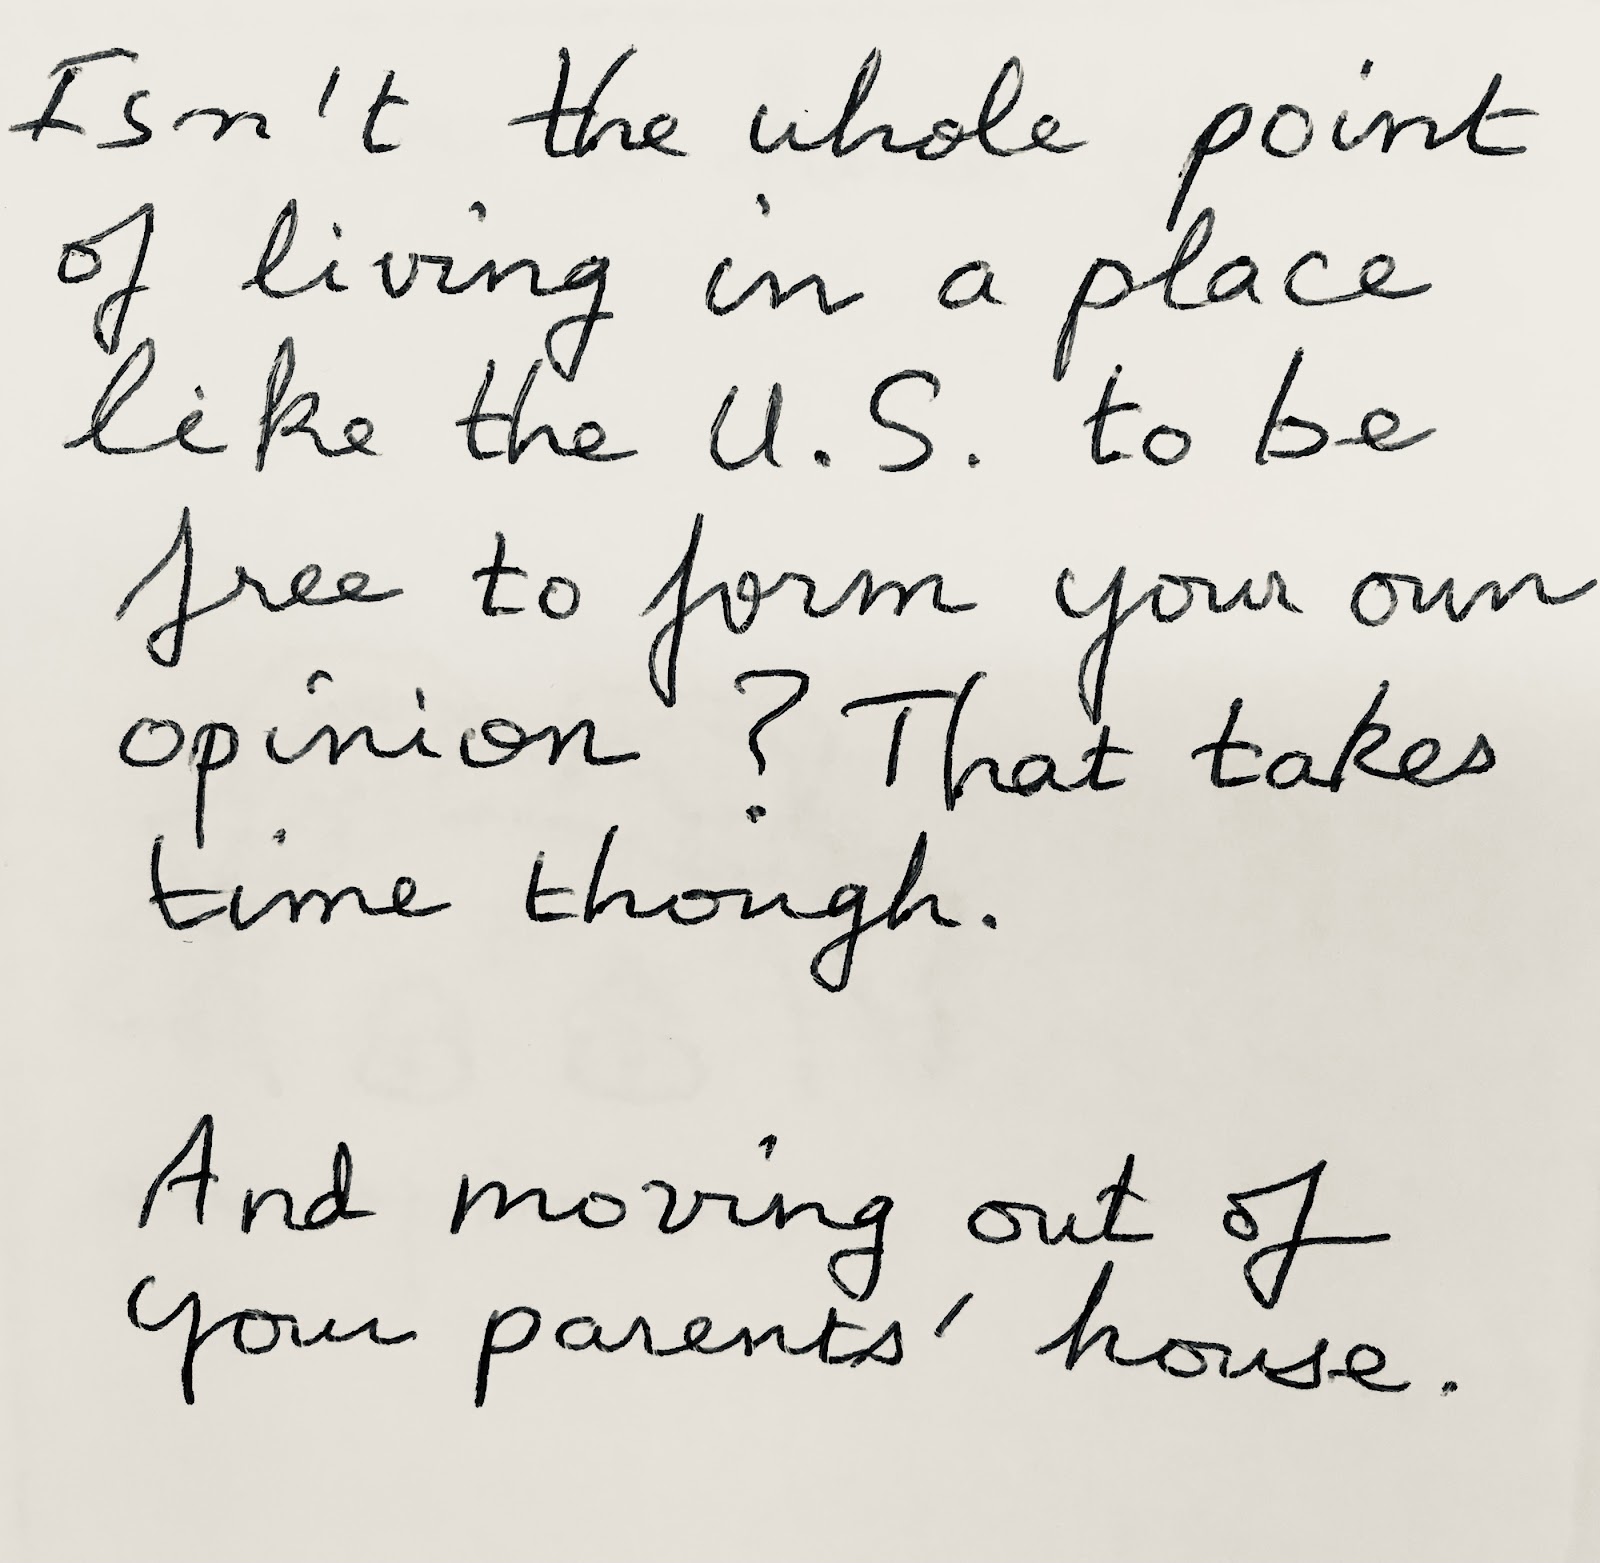 Isn't the whole point
of living in a place
like the U.S. to be
free to form your own
opinion? That takes
time though.
And moving out of
your parents' house.